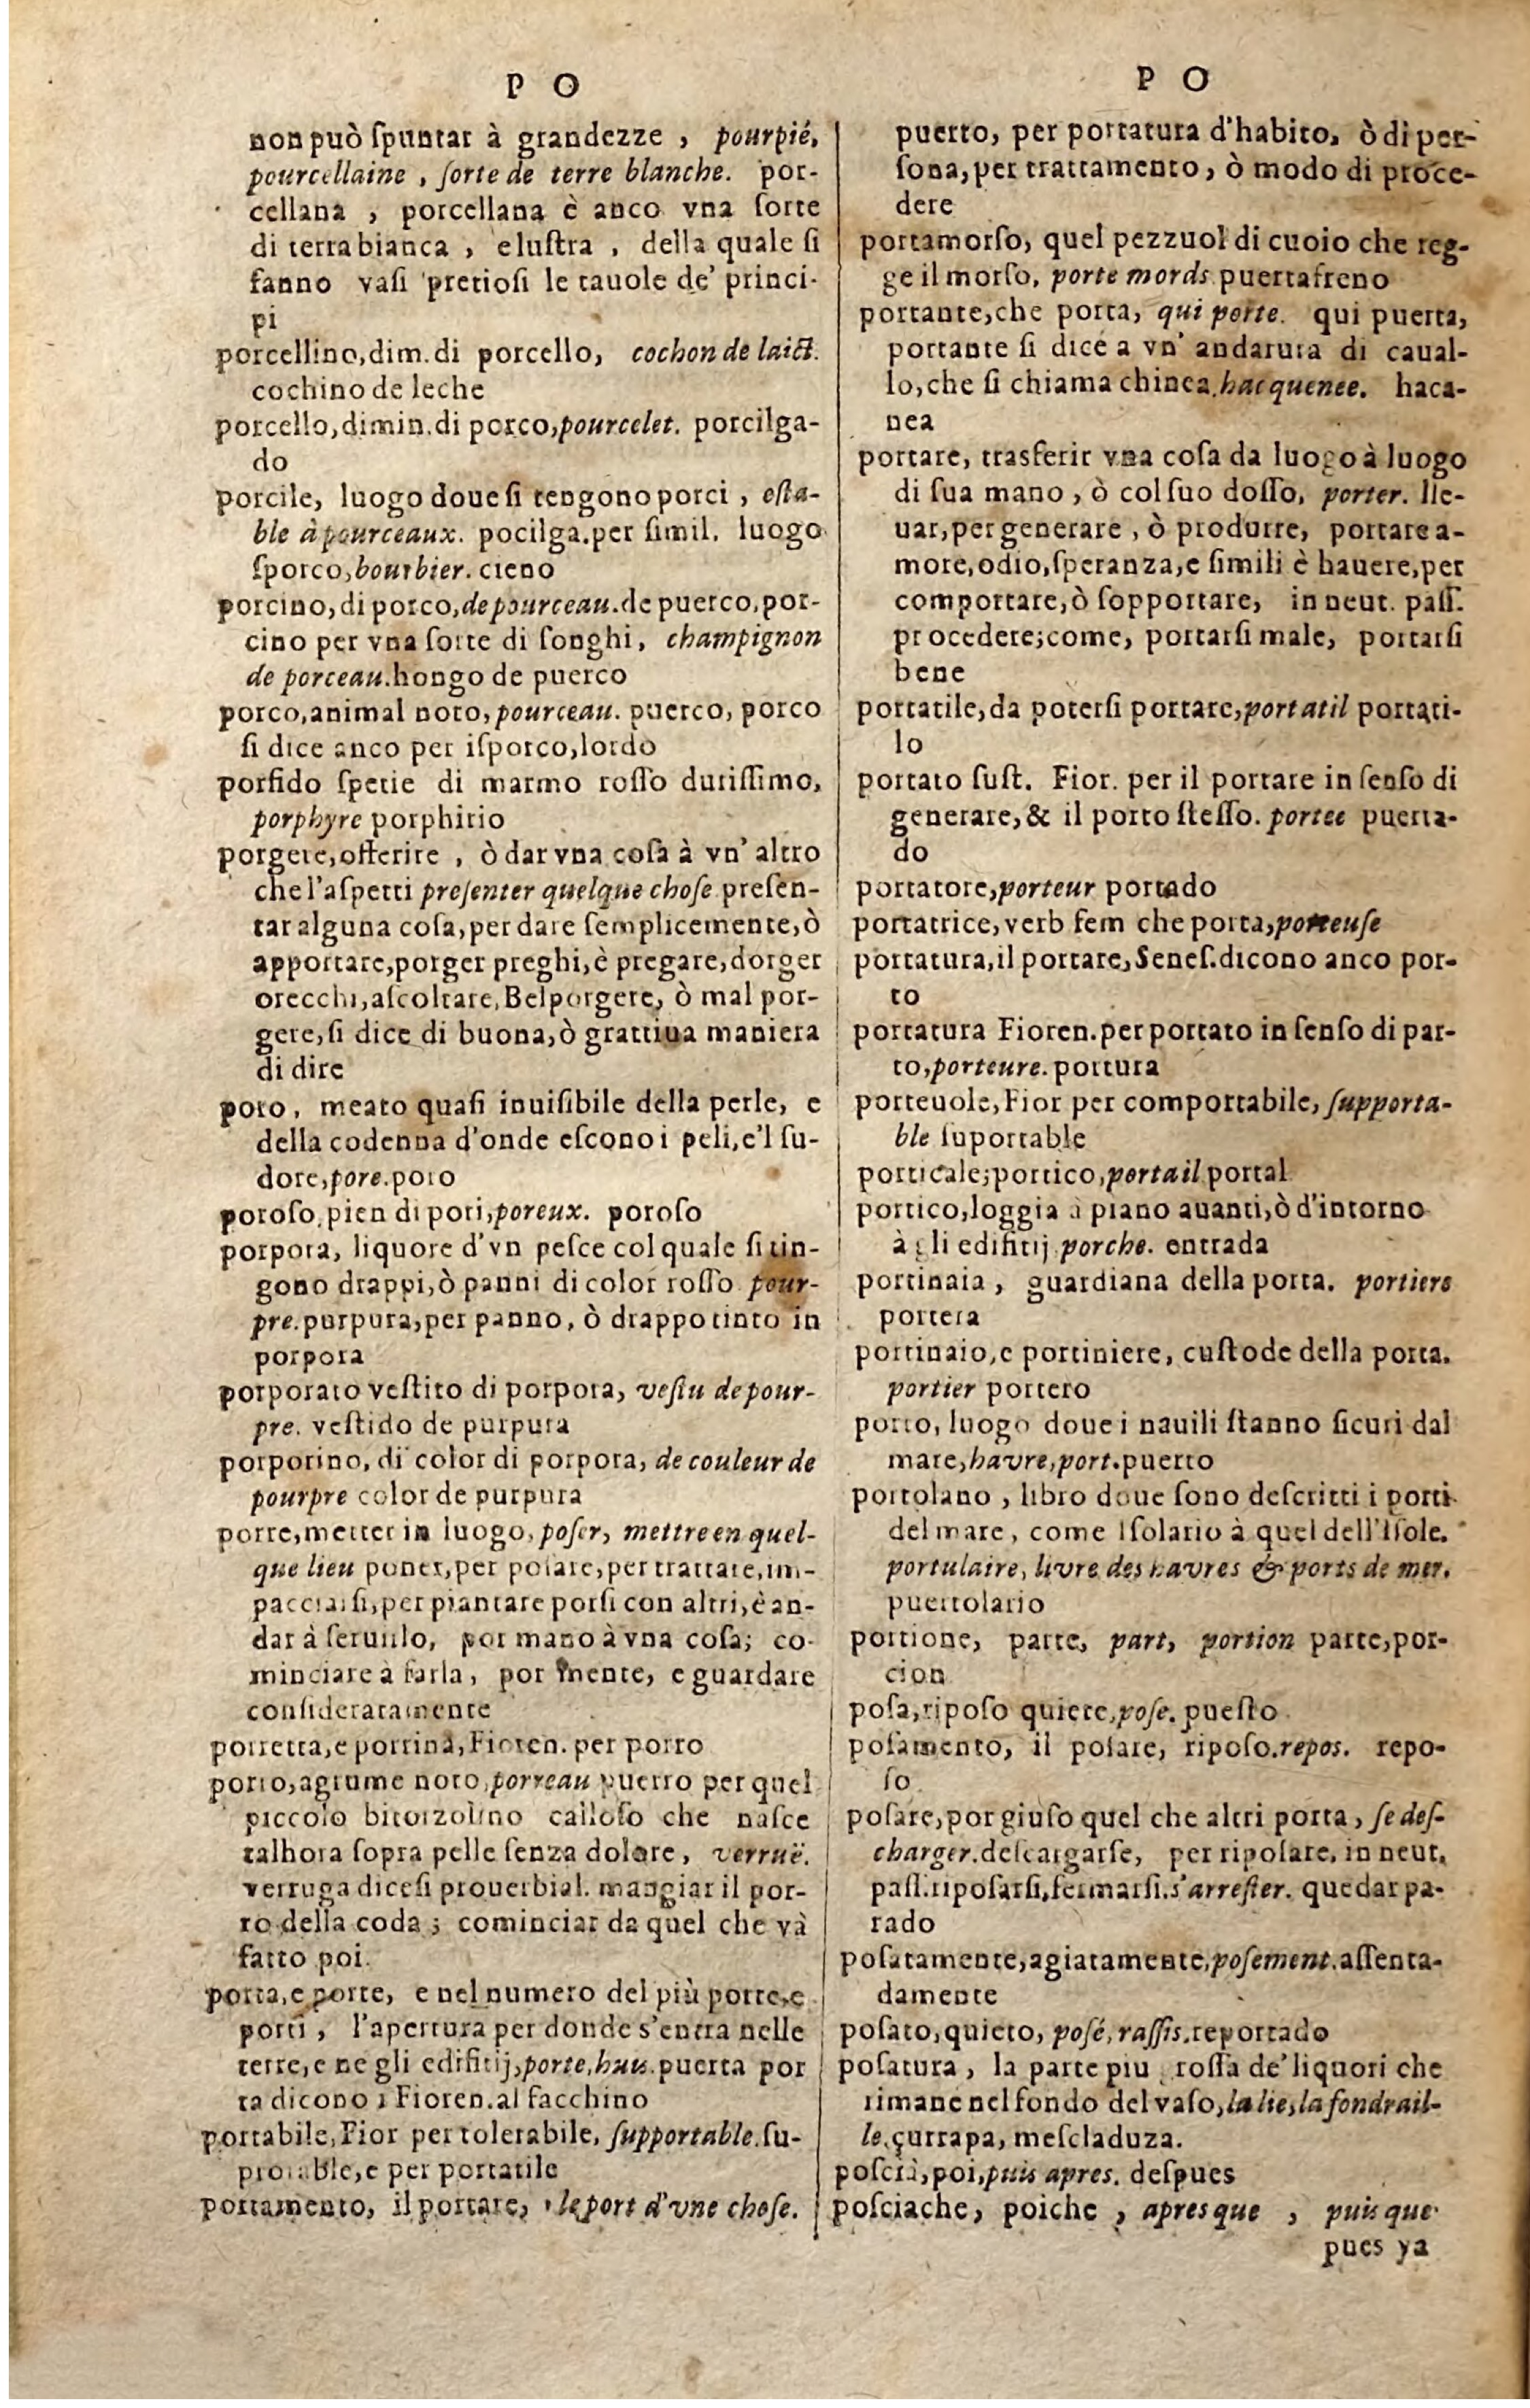 P O
non può ſpuntar à grandezze , pourpié,
pourcellaine , ſorte de terre blanche. por-
cellana , porcellana è anco vna ſorte
di terra bianca , e luſtra , della quale ſi
fanno vaſi pretioſi le tauole de' princi-
pi
porcellino, dim. di porcello, cochon de laict.
cochino de leche
porcello, dimin. di porco, pourcelet. porcilga-
do
porcile, luogo doue ſi tengono porci , eſta-
ble à pourceaux. pocilga. per ſimil. luogo
ſporco, bourbier. cieno
porcino, di porco, de pourceau. de puerco, por-
cino per vna ſorte di fonghi, champignon
de porceau. hongo de puerco
porco, animal noto, pourceau. puerco, porco
ſi dice anco per iſporco, lordo
porfido ſpetie di marmo roſſo duriſſimo,
porphyre porphirio
porgere, offerire , ò dar vna coſa à vn' altro
che l'aſpetti preſenter quelque choſe preſen-
tar alguna coſa, per dare ſemplicemente, ò
apportare, porger preghi, è pregare, dorger
orecchi, aſcoltare, Bel porgere, ò mal por-
gere, ſi dice di buona, ò grattiua maniera
di dire
poro, meato quaſi inuiſibile della perle, e
della codenna d'onde eſcono i peli, e'l ſu-
dore, pore. poro
poroſo, pien di pori, poreux. poroſo
porpora, liquore d'vn peſce col quale ſi tin-
gono drappi, ò panni di color roſſo pour-
pre. purpura, per panno, ò drappo tinto in
porpora
porporato veſtito di porpora, veſtu de pour-
pre. veſtido de purpura
porporino, di color di porpora, de couleur de
pourpre color de purpura
porre, metter in luogo, poſer, mettre en quel-
que lieu poner, per poſare, per trattare, im-
pacciarſi, per piantare porſi con altri, è an-
dar à ſeruirlo, por mano à vna coſa; co-
minciare à farla, por mente, e guardare
conſideratamente
porretta, e porrina, Fioren. per porro
porro, agrume noto, porreau puerro per quel
piccolo bitorzolino calloſo che naſce
talhora ſopra pelle ſenza dolore, verruë.
verruga diceſi prouerbial. mangiar il por-
ro della coda ; cominciar da quel che và
fatto poi.
porta, e porte, e nel numero del più porte, e
porti , l'apertura per donde s'entra nelle
terre, e ne gli edifitij, porte, huis. puerta por
ta dicono i Fioren. al facchino
portabile, Fior per tolerabile, ſupportable. ſu-
protable, e per portatile
portamento, il portare, le port d'vne choſe.
P O
puerto, per portatura d'habito, ò di per-
ſona, per trattamento, ò modo di proce-
dere
portamorſo, quel pezzuol di cuoio che reg-
ge il morſo, porte mords puertafreno
portante, che porta, qui porte. qui puerta,
portante ſi dice a vn' andatura di caual-
lo, che ſi chiama chinea. hacquenee. haca-
nea
portare, trasferir vna coſa da luogo à luogo
di ſua mano , ò col ſuo doſſo, porter. lle-
uar, per generare , ò produrre, portare a-
more, odio, ſperanza, e ſimili è hauere, per
comportare, ò ſopportare, in neut. paſſ.
procedere; come, portarſi male, portarſi
bene
portatile, da poterſi portare, portatil portati-
lo
portato ſuſt. Fior. per il portare in ſenſo di
generare, & il porto ſteſſo. portee puerta-
do
portatore, porteur portado
portatrice, verb fem che porta, porteuſe
portatura, il portare, Seneſ. dicono anco por-
to
portatura Fioren. per portato in ſenſo di par-
to, porteure. portura
porteuole, Fior per comportabile, ſupporta-
ble ſuportable
porticale; portico, portail portal
portico, loggia à piano auanti, ò d'intorno
à gli edifitij porche. entrada
portinaia , guardiana della porta. portiere
portera
portinaio, e portiniere, cuſtode della porta.
portier portero
porto, luogo doue i nauili ſtanno ſicuri dal
mare, havre, port. puerto
portolano , libro doue ſono deſcritti i porti
del mare, come Iſolario à quel dell'Iſole.
portulaire, livre des havres & ports de mer.
puertolario
portione, parte, part, portion parte, por-
cion
poſa, ripoſo quiete, poſe. pueſto
poſamento, il poſare, ripoſo. repos. repo-
ſo
poſare, por giuſo quel che altri porta , ſe deſ-
charger. deſcargarſe, per ripoſare, in neut.
paſſ. ripoſarſi, fermarſi. s'arreſter. quedar pa-
rado
poſatamente, agiatamente, poſement. aſſenta-
damente
poſato, quieto, poſé, raſſis. reportado
poſatura , la parte piu groſſa de' liquori che
rimane nel fondo del vaſo, la lie, la fondrail-
le. çurrapa, meſcladuza.
poſcia, poi, puis apres. deſpues
poſciache, poiche , apres que , puis que
pues ya